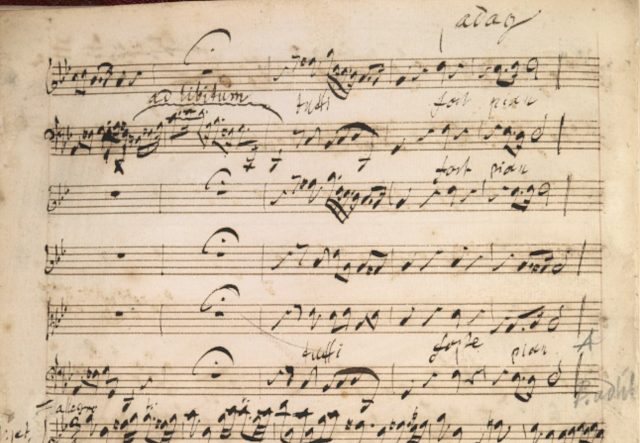 adag
ad libitum
tutti fort pian
fort pian
tutti forte pian
A
allegro